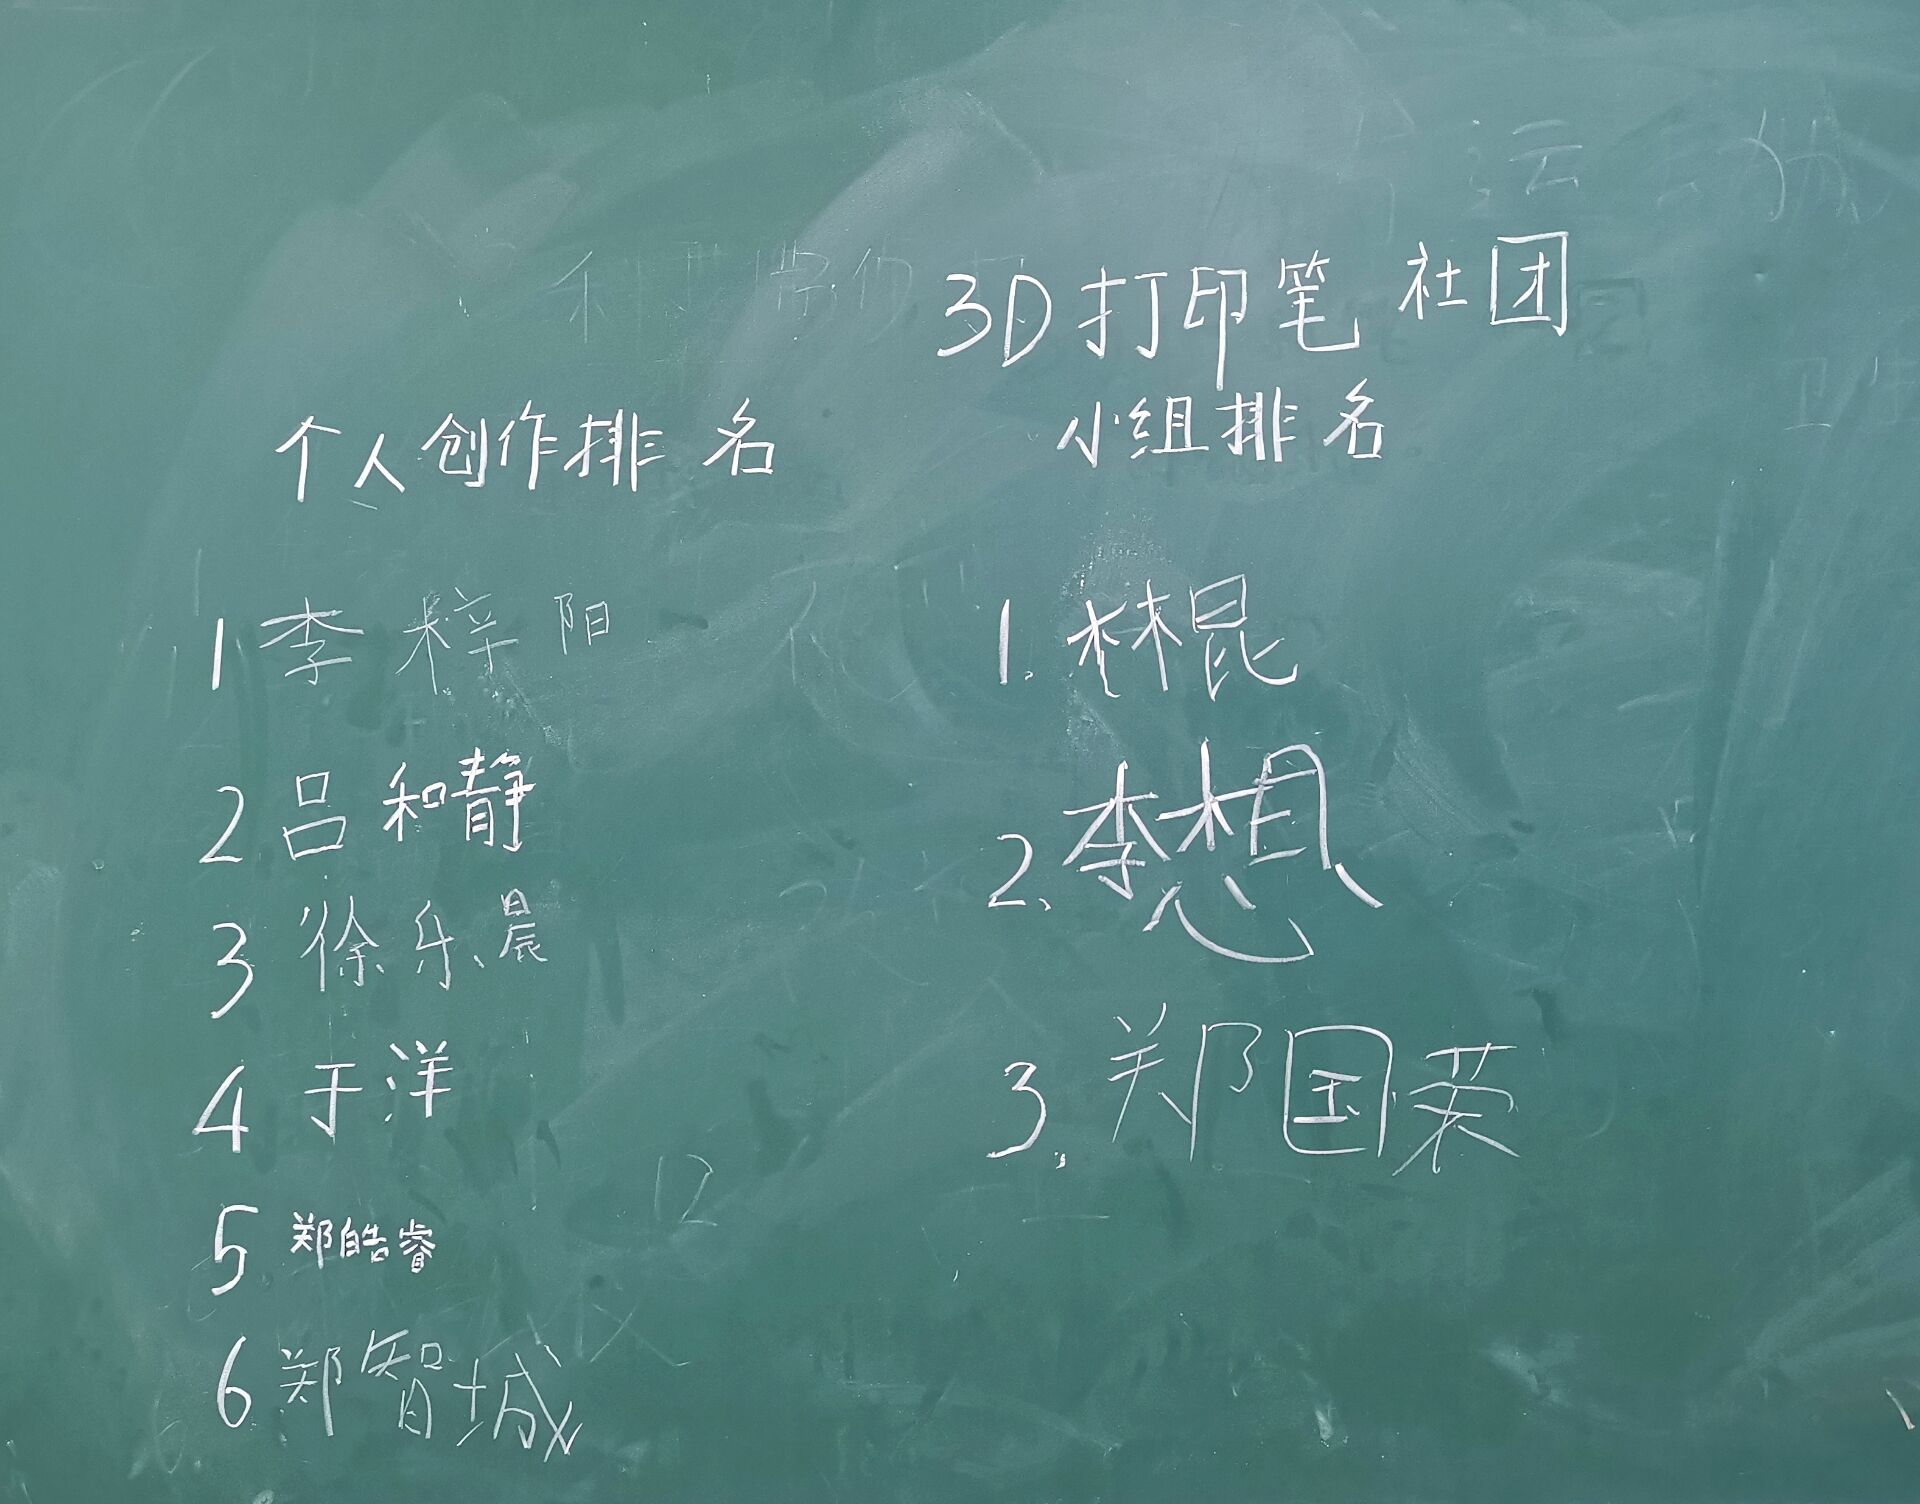 3D打印笔社团
个人创作排名
小组排名
1 李梓阳
2 吕和静
3 徐乐晨
4 于洋
5 郑皓睿
6 郑智城
1. 林昆
2. 李想
3. 郑国荣